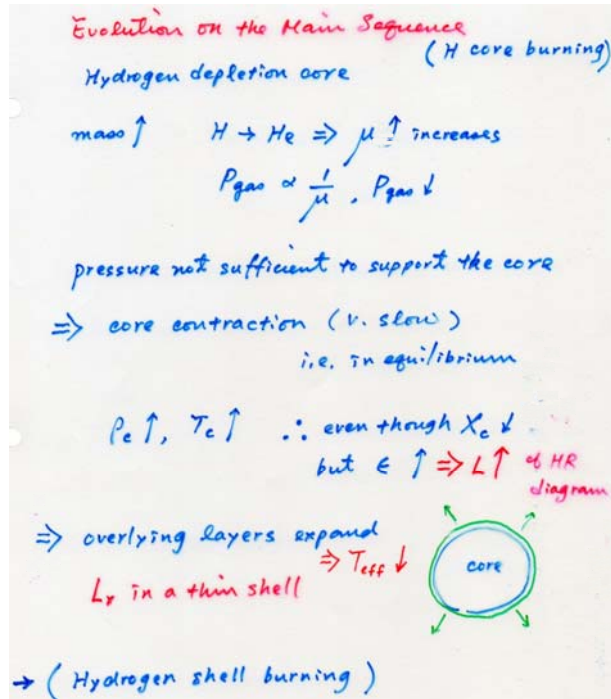 Evolution on the Main Sequence
(H core burning)
Hydrogen depletion core
mass ↑ H → He ⇒ μ ↑ increases
Pgas ∝ 1/μ, Pgas ↓
pressure not sufficient to support the core
⇒ core contraction (v. slow)
i.e. in equilibrium
ρc ↑, Tc ↑ ∴ even though Xc ↓
but ϵ ↑ ⇒ L ↑ of HR
diagram
⇒ overlying layers expand
⇒ Teff ↓
in a thin shell
core
→ (Hydrogen shell burning)